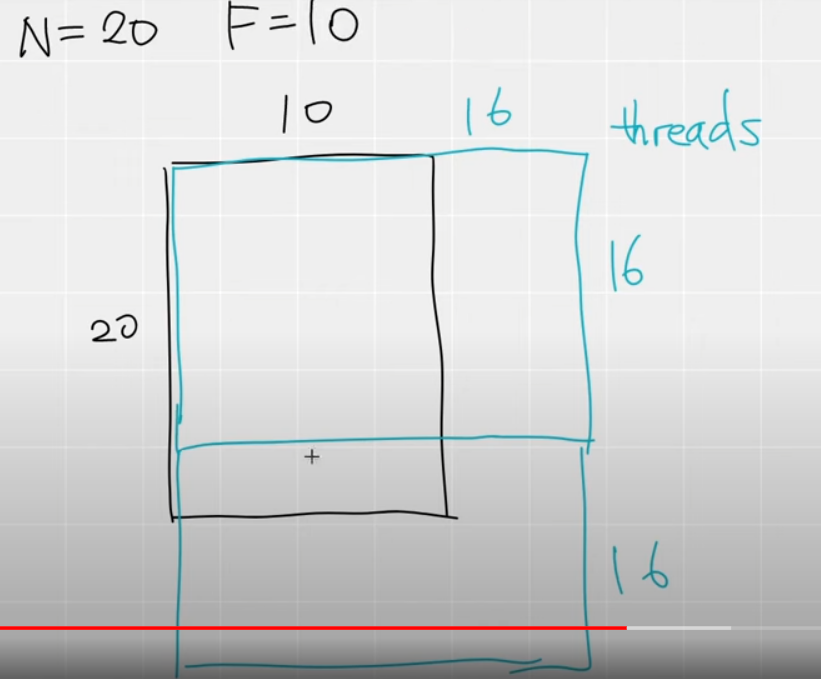 N=20 F=10
10 16 threads
16
20
16